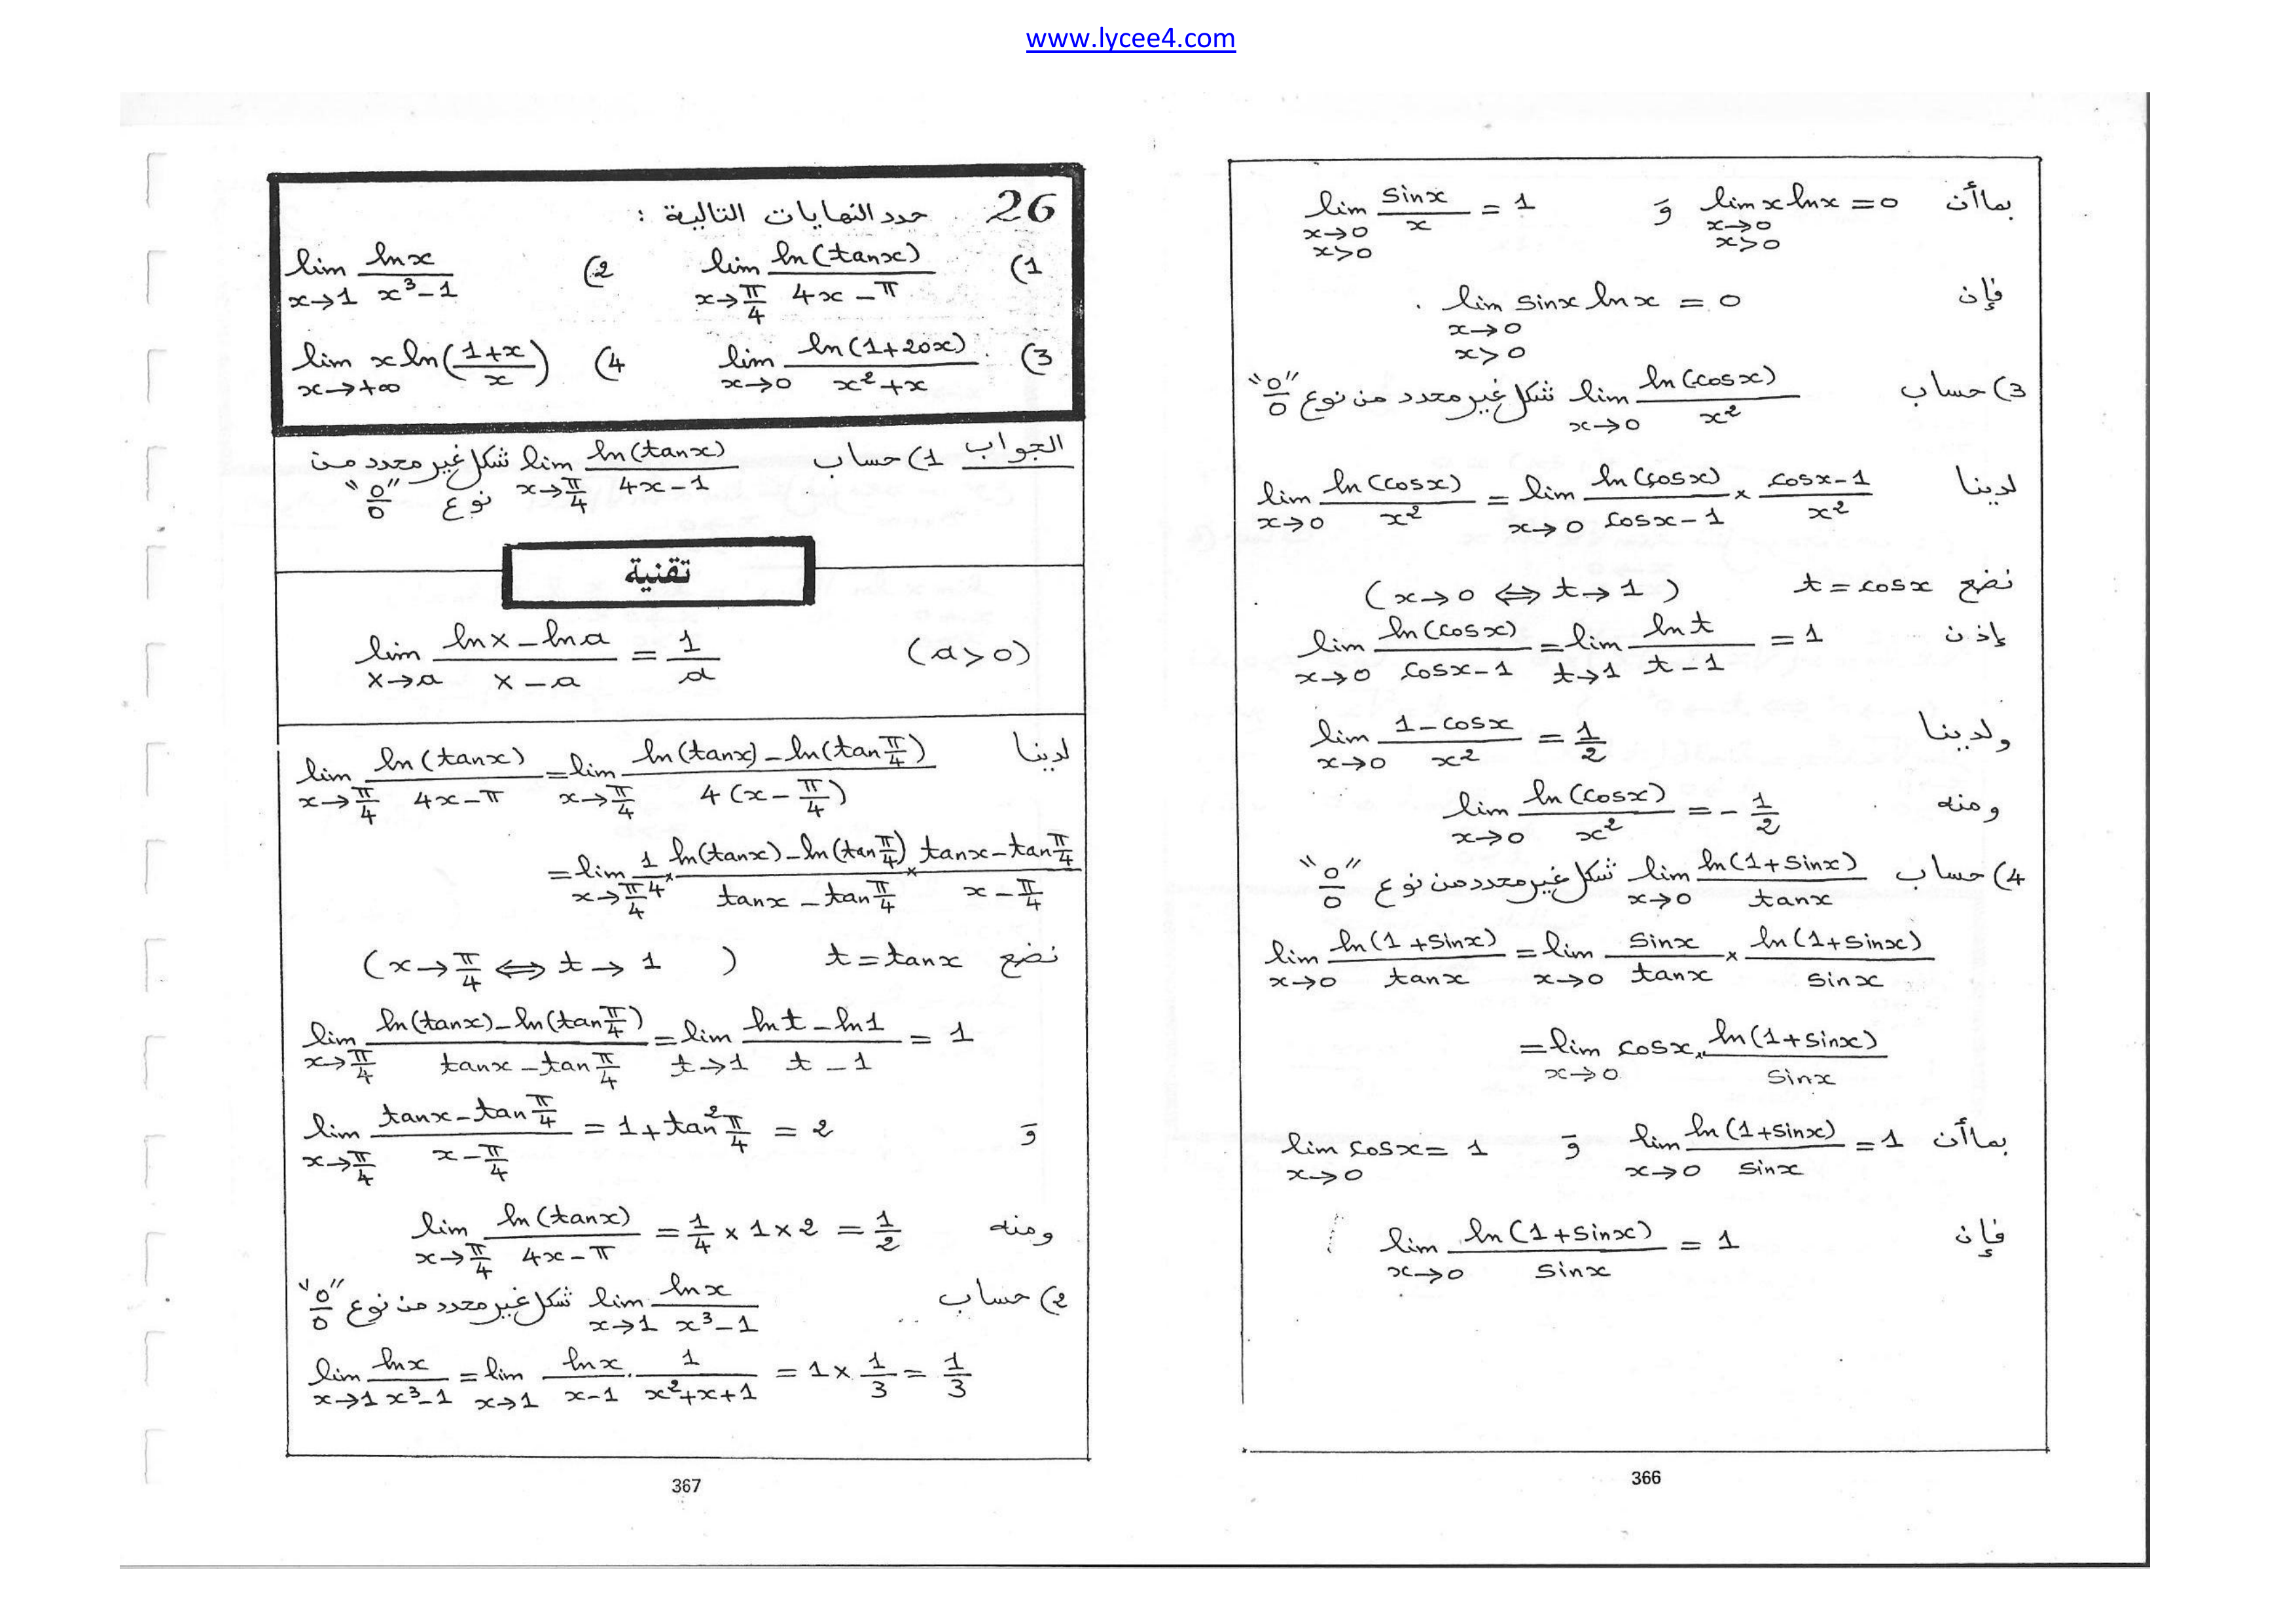 www.lycee4.com
بما أن lim_{x→0, x>0} x ln x = 0 وَ lim_{x→0, x>0} sin x / x = 1
فإن lim_{x→0, x>0} sin x ln x = 0 .
3) حساب lim_{x→0} ln(cos x) / x² شكل غير محدد من نوع "0/0"
لدينا lim_{x→0} ln(cos x) / x² = lim_{x→0} ln(cos x) / (cos x − 1) × (cos x − 1) / x²
نضع t = cos x (x→0 ⇔ t→1)
إذن lim_{x→0} ln(cos x) / (cos x − 1) = lim_{t→1} ln t / (t − 1) = 1
ولدينا lim_{x→0} (1 − cos x) / x² = 1/2
ومنه lim_{x→0} ln(cos x) / x² = − 1/2
4) حساب lim_{x→0} ln(1 + sin x) / tan x شكل غير محدد من نوع "0/0"
lim_{x→0} ln(1 + sin x) / tan x = lim_{x→0} sin x / tan x × ln(1 + sin x) / sin x
= lim_{x→0} cos x × ln(1 + sin x) / sin x
بما أن lim_{x→0} ln(1 + sin x) / sin x = 1 وَ lim_{x→0} cos x = 1
فإن lim_{x→0} ln(1 + sin x) / sin x = 1
366
26 . حدد النهايات التالية :
1) lim_{x→π/4} ln(tan x) / (4x − π) 2) lim_{x→1} ln x / (x³ − 1)
3) lim_{x→0} ln(1 + 20x) / (x² + x) 4) lim_{x→+∞} x ln((1 + x) / x)
الجواب 1) حساب lim_{x→π/4} ln(tan x) / (4x − 1) شكل غير محدد من
نوع "0/0"
تقنية
(a > 0) lim_{x→a} (ln x − ln a) / (x − a) = 1/a
لدينا lim_{x→π/4} ln(tan x) / (4x − π) = lim_{x→π/4} (ln(tan x) − ln(tan π/4)) / 4(x − π/4)
= lim_{x→π/4} 1/4 × (ln(tan x) − ln(tan π/4)) / (tan x − tan π/4) × (tan x − tan π/4) / (x − π/4)
نضع t = tan x (x→π/4 ⇔ t→1)
lim_{x→π/4} (ln(tan x) − ln(tan π/4)) / (tan x − tan π/4) = lim_{t→1} (ln t − ln 1) / (t − 1) = 1
وَ lim_{x→π/4} (tan x − tan π/4) / (x − π/4) = 1 + tan² π/4 = 2
ومنه lim_{x→π/4} ln(tan x) / (4x − π) = 1/4 × 1 × 2 = 1/2
2) حساب lim_{x→1} ln x / (x³ − 1) شكل غير محدد من نوع "0/0"
lim_{x→1} ln x / (x³ − 1) = lim_{x→1} ln x / (x − 1) . 1 / (x² + x + 1) = 1 × 1/3 = 1/3
367